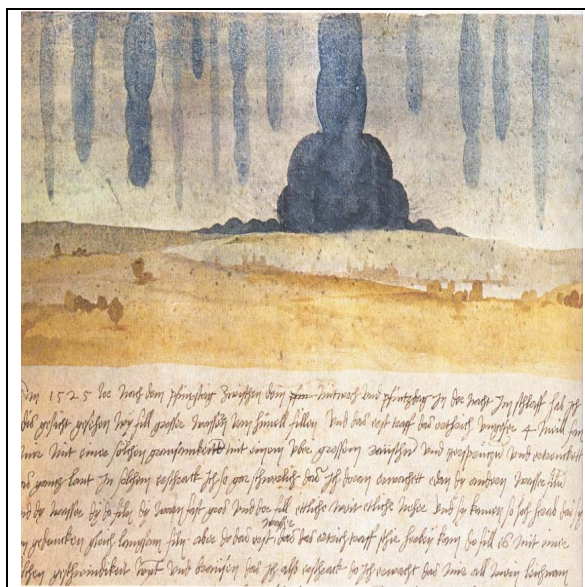 1525 Jor nach dem pfingstag zwischen dem pfin mitwoch und pfintzdag in der nacht im schlaff hab ich
gesicht gesehen wy fill grosser wassern vom himell fillen Und das erst traff das erthrich ungefer 4 meill fan
mir mit einer solchen grausamkeitt mit einem uber grossem rauschn und zersprützn und ertrenckett
gantz lant In solchem erschrack ich so gar schwerlich das ich doran erwachett edan dy andern wasser filn
dy wasser dy do filn dy waren fast gros und der fill ettliche weit etliche neher und sy kamen so hoch herab das sy
geduncken gleich langsam filn aber do das erst wasser das das ertrich traff schir herbey kam do fill es mit einer
geschwindikeit wynt und brausen das ich also erschrack do ich erwacht das mir all mein leichnam